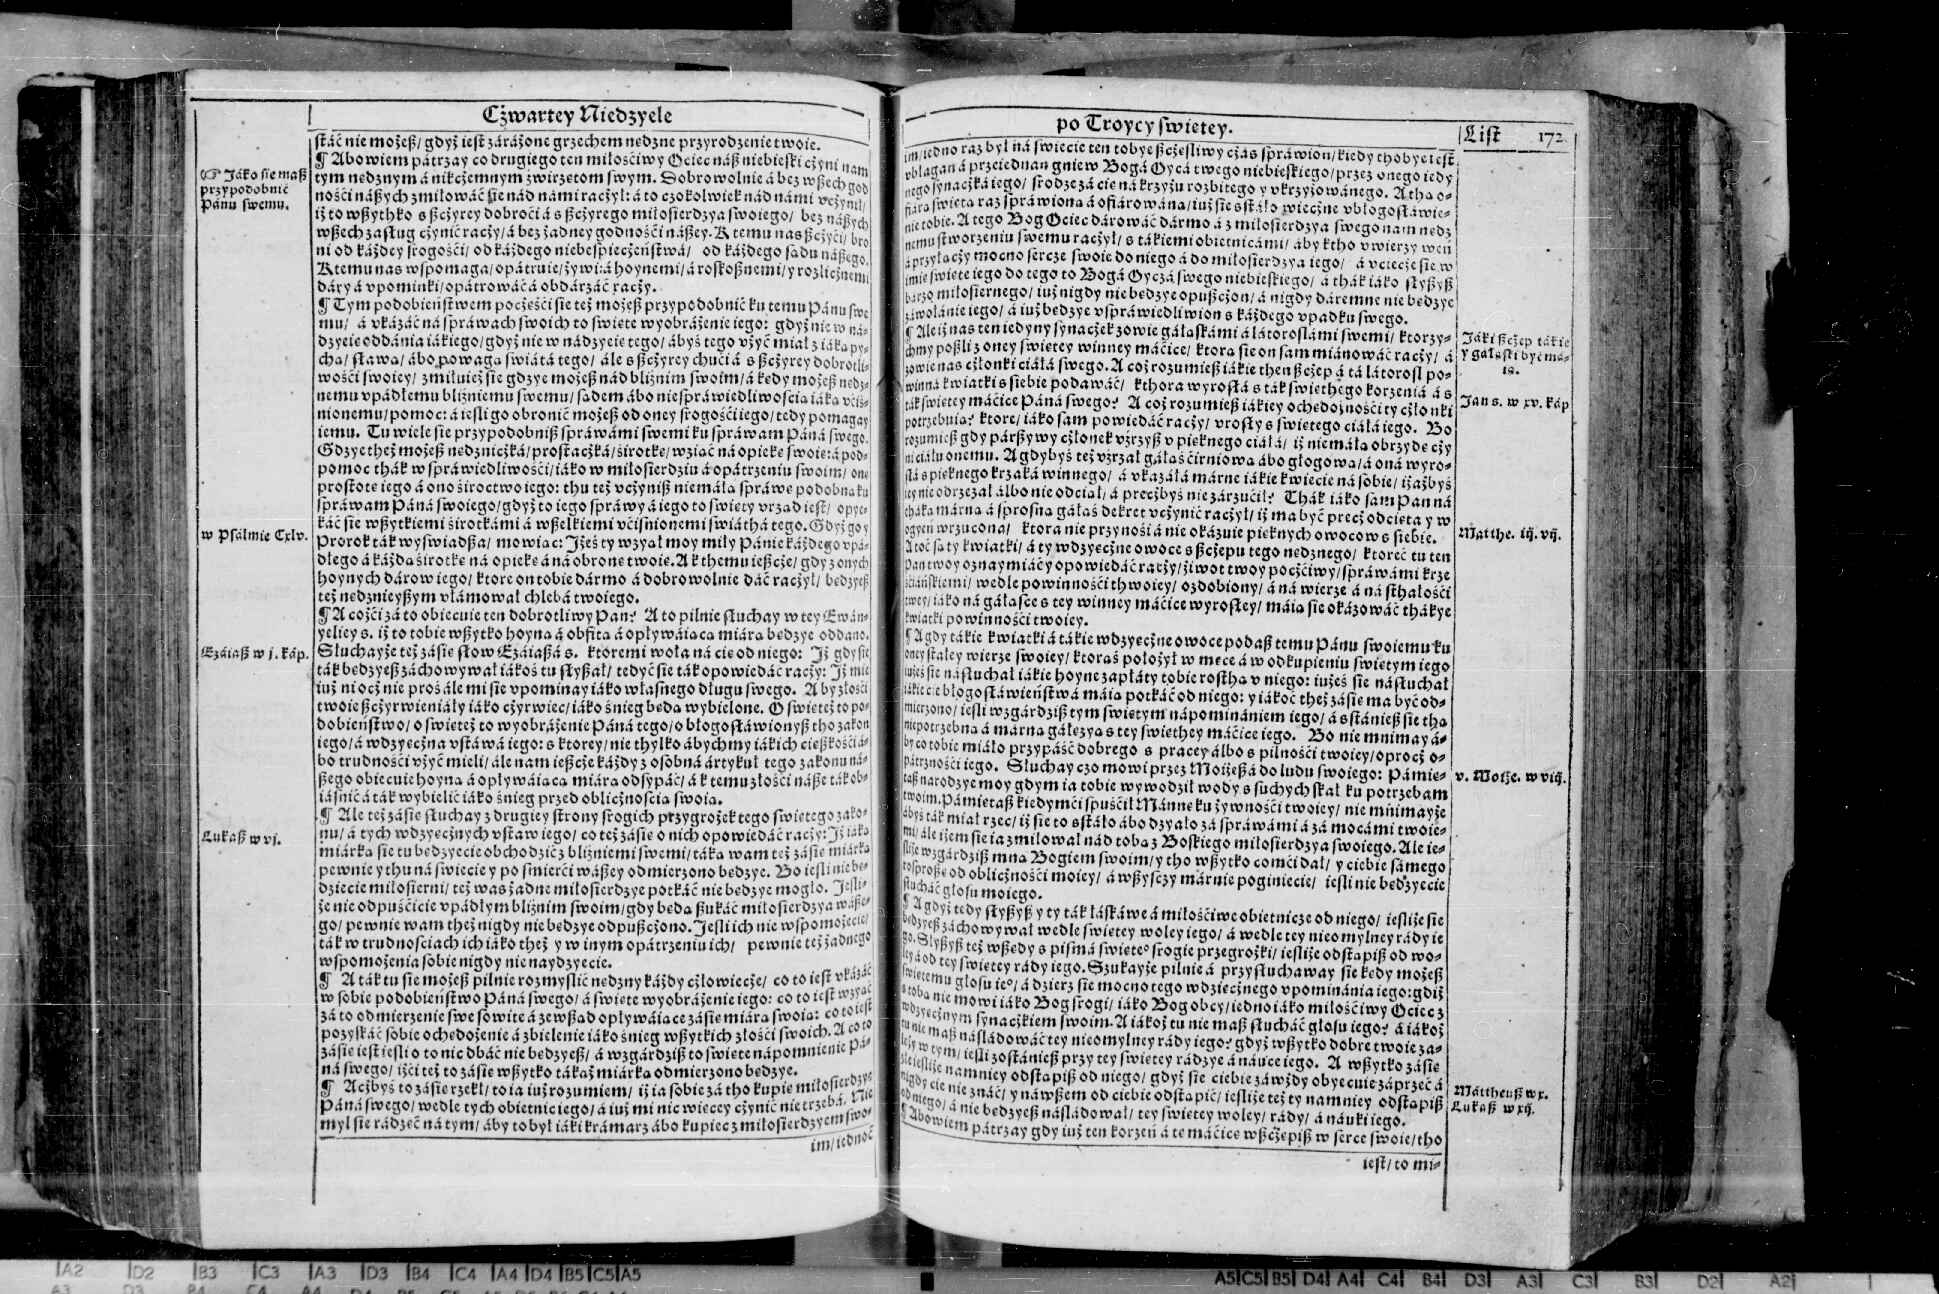 Czwartey Niedzyele
stáć nie możeß/ gdyż iest zaráżone grzechem nędzne przyrodzenie twoie.
¶ Abowiem pátrzay co drugiego ten miłośćiwy Ociec náß niebieski czyni nam
tym nędznym á nikczemnym źwirzętom swym. Dobrowolnie á bez wßech god
nośći náßych zmiłowáć sie nád námi raczył: á to czokolwiek nád námi vczynił/
iż to wßythko s ßczyrey dobroći á s ßczyrego miłosierdzya swoiego/ bez náßych
wßech zasług czynić raczy/ á bez żadney godnośći náßey. K temu nas ßczyći/ bro
ni od káżdey srogośći/ od káżdego niebespieczeństwá/ od káżdego sądu náßego.
K temu nas wspomaga/ opátruie/ żywi: á hoynemi/ á roskoßnemi/ y rozlicznemi
dáry á vpominki/ opátrowáć á obdárzáć raczy.
¶ Tym podobieństwem poczęśći sie też możeß przypodobnić ku temu Pánu swe
mu/ á vkázáć ná spráwach swoich to święte wyobráżenie iego: gdyż nie w ná-
dzyeię oddánia iákiego/ gdyż nie w nádzyeię tego/ ábyś tego vżyć miał z iáką py-
chą/ sławą/ ábo powagą świátá tego/ ále s ßczyrey chući á s ßczyrey dobrotli-
wośći swoiey/ zmiłuieß sie gdzye możeß nád bliźnim swoim/ á kedy możeß nędz-
nemu vpádłemu bliźniemu swemu/ sądem ábo niespráwiedliwośćią iáką vćiś-
nionemu/ pomoc: á iesli go obronić możeß od oney srogośći iego/ tedy pomagay
iemu. Tu wiele sie przypodobniß spráwámi swemi ku spráwam Páná swego.
Gdzye theż możeß nędzniczká/ prostaczká/ śirotkę/ wziąć ná opiekę swoię: á pod-
pomoc thák w spráwiedliwośći/ iáko w miłosierdziu á opátrzeniu swoim/ onę
prostotę iego á ono śiroctwo iego: thu też vczyniß niemáłą spráwę podobną ku
spráwam Páná swoiego/ gdyż to iego spráwy á iego to święty vrząd iest/ opye-
káć sie wßytkiemi śirotkámi á wßelkiemi vćiśnionemi świáthá tego. Gdyż go y
Prorok ták wyświadßa/ mowiąc: Iżeś ty wzyął moy miły Pánie káżdego vpá-
dłego á káżdą śirotkę ná opiekę á ná obronę twoię. A k themu ießcze/ gdy z onych
hoynych dárow iego/ ktore on tobie dármo á dobrowolnie dáć raczył/ będzyeß
też nędznieyßym vłamował chlebá twoiego.
¶ A cożći zá to obiecuie ten dobrotliwy Pan? A to pilnie słuchay w tey Ewán-
yeliey s. iż to tobie wßytko hoyna á obfita á opływáiąca miárá będzye oddaná.
Słuchayże też zásię słow Ezáiaßá s. ktoremi woła ná cię od niego: Iż gdy sie
ták będzyeß záchowywał iákoś tu słyßał/ tedyć sie ták opowiedáć raczy: Iż mię
iuż ni ocz nie proś ále mi sie vpominay iáko własnego długu swego. A by złośći
twoie ßczyrwieniáły iáko czyrwiec/ iáko śnieg będą wybielone. O święteż to po-
dobieństwo/ o świętež to wyobráżenie Páná tego/ o błogosłáwionyß tho zakon
iego/ á wdzyęczna vstáwá iego: s ktorey/ nie thylko ábychmy iákich cięßkośći á-
bo trudnośći vżyć mieli/ ále nam ießcze káżdy z osobná ártykuł tego zakonu ná-
ßego obiecuie hoyną á opływáiącą miárą odsypáć/ á k temu złośći náße ták ob-
iáśnić á ták wybielić iáko śnieg przed oblicznośćią swoią.
¶ Ale też zásię słuchay z drugiey strony srogich przygrożek tego świętego zako-
nu/ á tych wdzyęcznych vstaw iego/ co też zásię o nich opowiedáć raczy: Iż iáką
miárką sie tu będzyecie obchodzić z bliźniemi swemi/ táką wam też zásię miárką
pewnie y thu ná świecie y po śmierći wáßey odmierzono będzye. Bo iesli nie bę-
dziecie miłosierni/ też was żadne miłosierdzye potkáć nie będzye mogło. Iesli-
że nie odpuśćicie vpádłym bliźnim swoim/ gdy będą ßukáć miłosierdzya wáße-
go/ pewnie wam theż nigdy nie będzye odpußczono. Iesli ich nie wspomożecie/
ták w trudnościach ich iáko theż y w inym opátrzeniu ich/ pewnie też żadnego
wspomożenia sobie nigdy nie naydzyecie.
¶ A ták tu sie możeß pilnie rozmyślić nędzny káżdy człowiecze/ co to iest vkázáć
w sobie podobieństwo Páná swego/ á święte wyobráżenie iego: co to iest wzyąć
zá to odmierzenie swe sowite á zewßąd opływáiące zásię miárą swoią: co to iest
pozyskáć sobie ochędożenie á zbielenie iáko śnieg wßytkich złośći swoich. A co to
zásię iest iesli o to nic dbáć nie będzyeß/ á wzgárdziß to święte nápomnienie Pá-
ná swego/ iżći też to zásię wßytko tákąż miárką odmierzono będzye.
¶ Aczbyś to zásię rzekł/ to ia iuż rozumiem/ iż ia sobie zá tho kupię miłosierdzye
Páná swego/ wedle tych obietnic iego/ á iuż mi nic więcey czynić nie trzebá. Nie
myl sie rádzęć ná tym/ áby to był iáki kramarz ábo kupiec z miłosierdzyem swo-
im/ iednoć
☞ Jáko sie maß
przypodobnić
Pánu swemu.
w Psálmie Cxlv.
Ezáiaß w j. káp.
Lukaß w vj.
po Troycy świętey.
List 172
im/ iedno raz był ná świecie ten tobye ßczęśliwy czás spráwion/ kiedy thobye iest
vbłagan á przeiednan gniew Bogá Oycá twego niebieskiego/ przez onego iedy
nego synaczká iego/ srodze zá cię ná krzyżu rozbitego y vkrzyżowánego. A tha o-
fiárá święta raz spráwiona á ofiárowána/ iuż sie sstáło wieczne vbłogosławie-
nie tobie. A tego Bog Ociec dárowáć dármo á z miłosierdzya swego nam nędz
nemu stworzeniu swemu raczył/ s tákiemi obietnicámi/ áby ktho vwierzy weń
á przyłączy mocno serce swoie do niego á do miłosierdzya iego/ á vciecze sie w
imię święte iego do tego to Bogá Oyczá swego niebieskiego/ á thák iáko słyßyß
bárzo miłosiernego/ iuż nigdy nie będzye opußczon/ á nigdy dáremne nie będzye
záwołánie iego/ á iuż będzye vspráwiedliwion s káżdego vpadku swego.
¶ Ale iż nas ten iedyny synaczek zowie gałąskámi á látoroslámi swemi/ ktorzy-
chmy poßli z oney świętey winney máćice/ ktorą sie on sam miánowáć raczy/ á
zowie nas członki ciáłá swego. A coż rozumieß iákie then ßczep á tá látorosl po-
winná kwiatki s siebie podawáć/ kthora wyrostá s ták świethego korzeniá á s
ták świętey máćice Páná swego? A coż rozumieß iákiey ochędożnośći ty członki
potrzebuią? ktore/ iáko sam powiedáć raczy/ vrosty s świętego ciáłá iego. Bo
rozumieß gdy párßywy członek vźrzyß v pięknego ciáłá/ iż niemáłą obrzydę czy
ni ciáłu onemu. A gdybyś też vźrzał gáłąś ćirniową ábo głogową/ á oná wyro-
stá s pięknego krzaká winnego/ á vkazáłá márne iákie kwiecie ná sobie/ iżażbyś
iey nie odrzezał álbo nie odciął/ á precżbyś nie zárzućił? Thák iáko sam Pan ná
tháką márną á sprosną gáłąś dekret vczynić raczył/ iż ma być precz odcięta y w
ogień wrzucona/ ktora nie przynośi á nie okázuie pięknych owocow s siebie.
A toć są ty kwiatki/ á ty wdzyęczne owoce s ßczepu tego nędznego/ ktoreć tu ten
Pan twoy oznaymiáć y opowiedáć raczy/ żiwot twoy poczćiwy/ spráwámi krze
śćiáńskiemi/ wedle powinnośći thwoiey/ ozdobiony/ á ná wierze á ná sthałośći
twey/ iáko ná gałąsce s tey winney máćice wyrostey/ máią sie okázowáć thákye
kwiatki powinnośći twoiey.
¶ A gdy tákie kwiatki á tákie wdzyęczne owoce podaß temu Pánu swoiemu ku
oney stałey wierze swoiey/ ktorąś położył w męce á w odkupieniu świętym iego
iużeś sie násłuchał iákie hoyne zapłáty tobie rosthą v niego: iużeś sie násłuchał
iákie cię błogosłáwieństwá máią potkáć od niego: y iákoć theż zásię ma być od-
mierzono/ iesli wzgárdziß tym świętym nápominániem iego/ á sstánieß sie tha
niepotrzebna á márna gáłęzya s tey świethey máćice iego. Bo nie mnimay á-
by co tobie miáło przypáść dobrego s pracey álbo s pilnośći twoiey/ oprocz o-
pátrznośći iego. Słuchay czo mowi przez Moiżeßá do ludu swoiego: Pámię-
taß narodzye moy gdym ia tobie wywodził wody s suchych skał ku potrzebam
twoim. Pámiętaß kiedymći spuśćił Mánnę ku żywnośći twoiey/ nie mnimayże
ábyś ták miał rzec/ iż sie to sstáło ábo dzyáło zá spráwámi á zá mocámi twoie-
mi/ ále iżem sie ia zmiłował nád tobą z Boskiego miłosierdzya swoiego. Ale ie-
sliże wzgárdziß mną Bogiem swoim/ y tho wßytko comći dał/ y ciebie sámego
rosproßę od oblicznośći moiey/ á wßyßczy márnie poginiecie/ iesli nie będzyecie
słucháć głosu moiego.
¶ A gdyż tedy słyßyß y ty ták łáskáwe á miłośćiwe obietnicze od niego/ iesliże sie
będzyeß záchowywał wedle świętey woley iego/ á wedle tey nieomylney rády ie
go. Słyßyß też wßędy s pismá święte° srogie przegrożki/ iesliże odstąpiß od wo-
ley á od tey świętey rády iego. Szukayże pilnie á przysłuchaway sie kędy możeß
świętemu głosu ie°/ á dzierż sie mocno tego wdzięcznego vpominánia iego: gdiż
s tobą nie mowi iáko Bog srogi/ iáko Bog obcy/ iedno iáko miłośćiwy Ociec z
wdzyęcznym synaczkiem swoim. A iákoż tu nie maß słucháć głosu iego? á iákoż
tu nie maß násládowáć tey nieomylney rády iego? gdyż wßytko dobre twoie zá-
leży w tym/ iesli zostánieß przy tey świętey rádzye á náuce iego. A wßytko zásię
złe iesliże namniey odstąpiß od niego/ gdyż sie ciebie záwżdy obyecuie záprzeć á
nigdy cię nie znáć/ y náwßem od ciebie odstąpić/ iesliże też ty namniey odstąpiß
od niego/ á nie będzyeß násládował/ tey świętey woley/ rády/ á náuki iego.
¶ Abowiem pátrzay gdy iuż ten korzeń á tę máćicę wßczepiß w serce swoie/ tho
iest/ to mi-
Jáki ßczep tákie
y gáłąski być má-
ią.
Jan s. w xv. káp
Matthe. iij. vij.
v. Moiże. w viij.
Máttheuß w x.
Lukaß w xij.
A2 D2 B3 C3 A3 D3 B4 C4 A4 D4 B5 C5 A5
A5 C5 B5 D4 A4 C4 B4 D3 A3 C3 B3 D2 A2